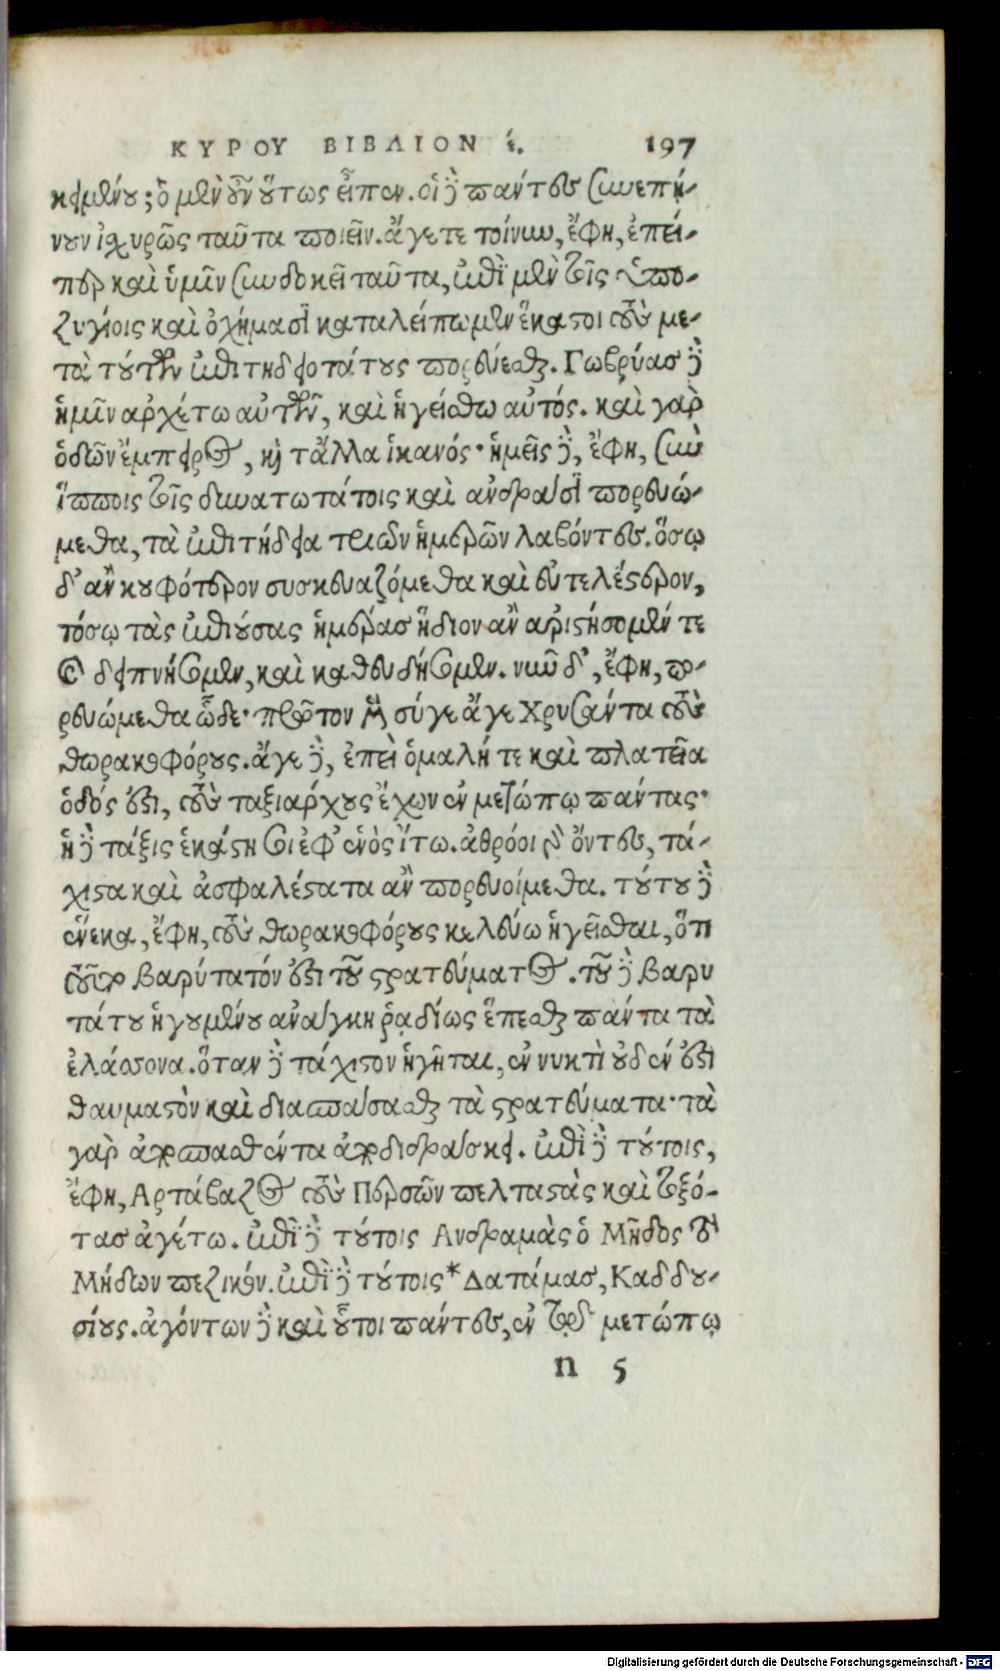 ΚΥΡΟΥ ΒΙΒΛΙΟΝ έ. 197
κειμένου; ὁ μὲν οὖν οὕτως εἶπεν. οἱ δὲ πάντες συνεπῄ-
νουν ἰσχυρῶς ταῦτα ποιεῖν. ἄγετε τοίνυν, ἔφη, ἐπεί-
περ καὶ ὑμῖν συνδοκεῖ ταῦτα, ἐπὶ μὲν τοῖς ὑπο-
ζυγίοις καὶ ὀχήμασι καταλείπωμεν ἕκαστοι τοὺς με-
τὰ τούτων ἐπιτηδειοτάτους πορεύεσθαι. Γωβρύας δὲ
ἡμῖν ἀρχέτω αὐτῶν, καὶ ἡγείσθω αὐτός. καὶ γὰρ
ὁδῶν ἔμπειρος, καὶ τἄλλα ἱκανός· ἡμεῖς δὲ, ἔφη, σὺν
ἵπποις τοῖς δυνατωτάτοις καὶ ἀνδράσι πορευώ-
μεθα, τὰ ἐπιτήδεια τριῶν ἡμερῶν λαβόντες. ὅσῳ
δ' ἂν κουφότερον συσκευαζόμεθα καὶ εὐτελέστερον,
τόσῳ τὰς ἐπιούσας ἡμέρας ἥδιον ἂν ἀριστήσομέν τε
καὶ δειπνήσομεν, καὶ καθευδήσομεν. νῦν δ', ἔφη, πο-
ρευώμεθα ὧδε· πρῶτον μὲν σύγε ἄγε Χρυσάντα τοὺς
θωρακοφόρους. ἄγε δὲ, ἐπεὶ ὁμαλή τε καὶ πλατεῖα
ὁδός ἐστι, τοὺς ταξιάρχους ἔχων ἐν μετώπῳ πάντας·
ἡ δὲ τάξις ἑκάστη σοι ἐφ' ἑνὸς ἴτω. ἀθρόοι γὰρ ὄντες, τά-
χιστα καὶ ἀσφαλέστατα ἂν πορευοίμεθα. τούτου δὲ
ἕνεκα, ἔφη, τοὺς θωρακοφόρους κελεύω ἡγεῖσθαι, ὅτι
τοῦτο βαρύτατόν ἐστι τοῦ στρατεύματος. τοῦ δὲ βαρυ
τάτου ἡγουμένου ἀνάγκη ῥᾳδίως ἕπεσθαι πάντα τὰ
ἐλάσσονα. ὅταν δὲ τάχιστον ἡγῆται, ἐν νυκτὶ οὐδέν ἐστι
θαυμαστὸν καὶ διασπάσασθαι τὰ στρατεύματα· τὰ
γὰρ ἀποσπασθέντα ἀποδιδράσκει. ἐπὶ δὲ τούτοις,
ἔφη, Ἀρτάβαζος τοὺς Περσῶν πελταστὰς καὶ τοξό-
τας ἀγέτω. ἐπὶ δὲ τούτοις Ἀνδραμὰς ὁ Μῆδος τὸ
Μήδων πεζικόν. ἐπὶ δὲ τούτοις *Δατάμας, Καδδου-
σίους. ἀγόντων δὲ καὶ οὗτοι πάντες, ἐν τῷ μετώπῳ
n 5
Digitalisierung gefördert durch die Deutsche Forschungsgemeinschaft - DFG